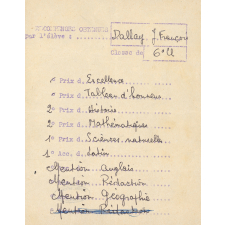 RECOMPENSES OBTENUES
par l'élève à ........ Dallay J. François
Classe de 6e U
e Prix d. Excellence
e Prix d. Tableau d'honneur
2e Prix d. Histoire
2e Prix d. Mathématiques
1e Prix d. Sciences naturelles
1e Acc. d. Latin
Mention Anglais
Mention Rédaction
Mention Géographie
Mention Rédaction